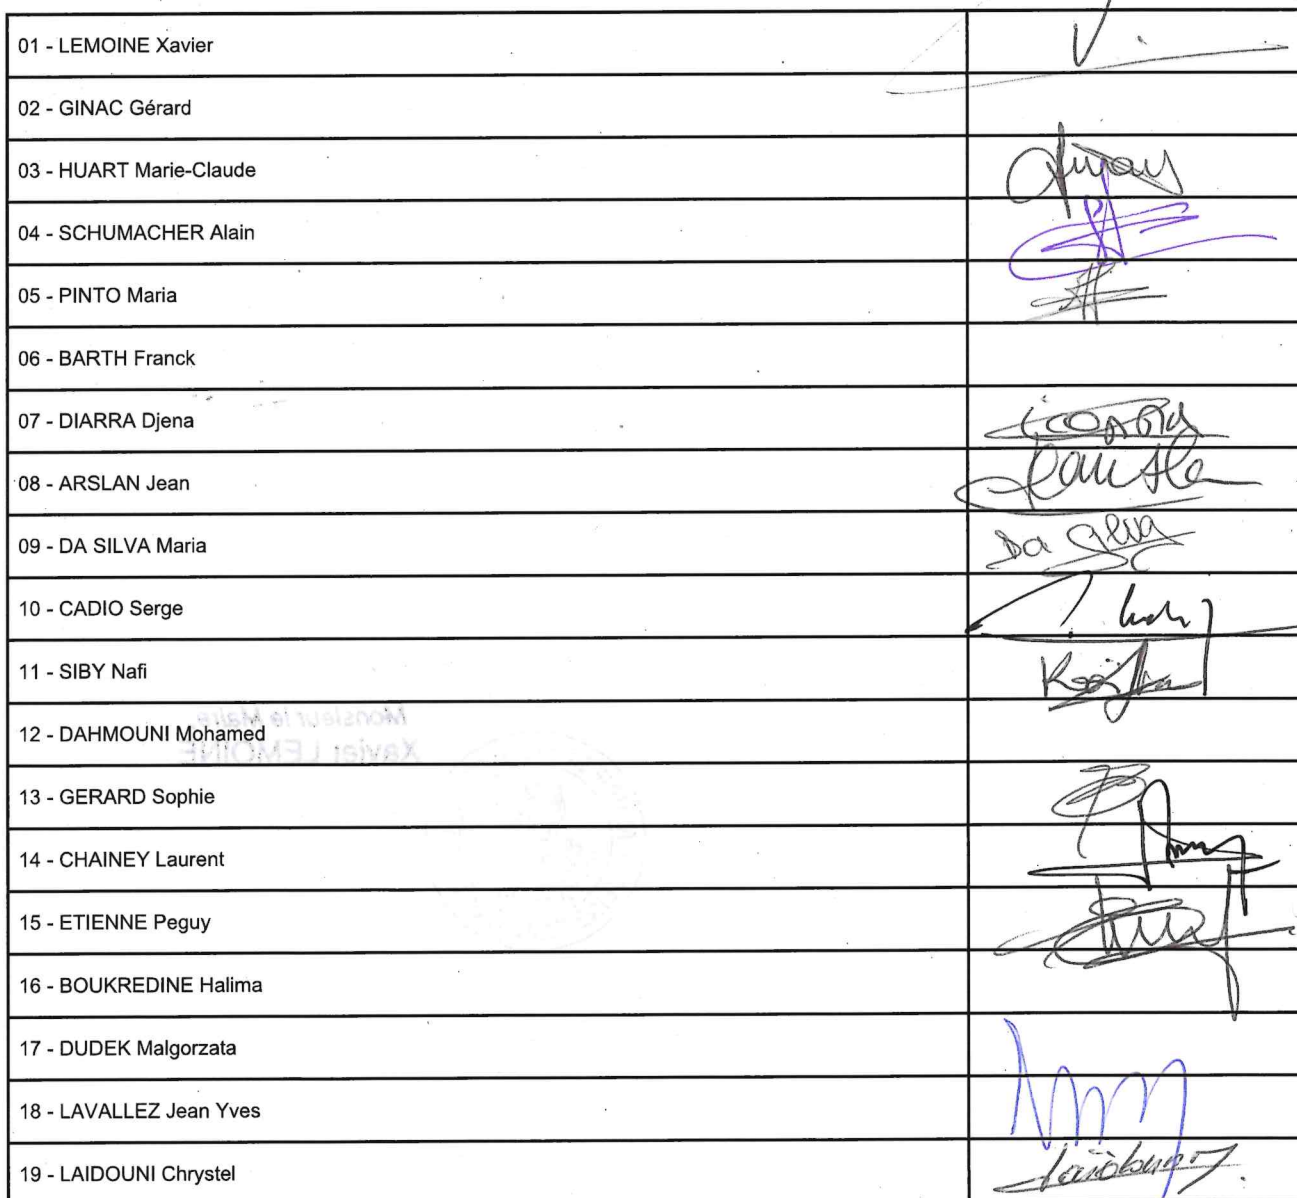 01 - LEMOINE Xavier
02 - GINAC Gérard
03 - HUART Marie-Claude
04 - SCHUMACHER Alain
05 - PINTO Maria
06 - BARTH Franck
07 - DIARRA Djena
08 - ARSLAN Jean
09 - DA SILVA Maria Da Silva
10 - CADIO Serge
11 - SIBY Nafi
Monsieur le Maire,
12 - DAHMOUNI Mohamed
Xavier LEMOINE
13 - GERARD Sophie
14 - CHAINEY Laurent
15 - ETIENNE Peguy
16 - BOUKREDINE Halima
17 - DUDEK Malgorzata
18 - LAVALLEZ Jean Yves
19 - LAIDOUNI Chrystel